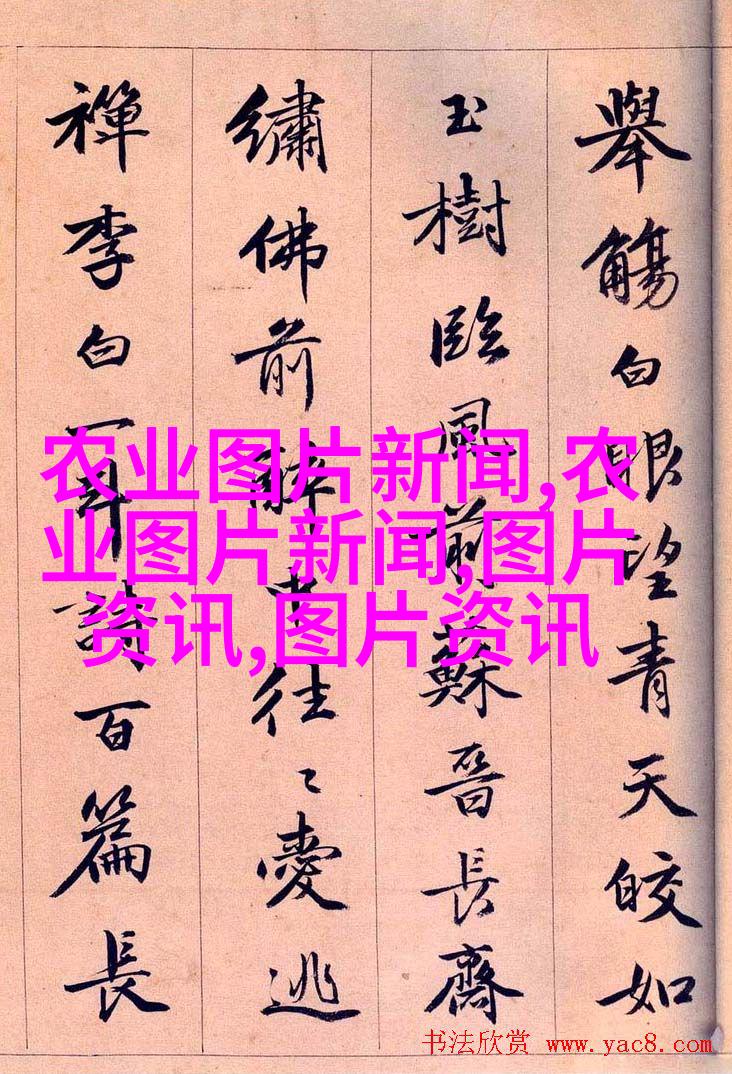 舉觴白眼望青天皎如
玉樹臨風前蘇晉長齋
繡佛前醉中往々愛逃
禪李白一斗詩百篇長
农业图片新闻,农
业图片新闻,图片
资讯,图片资讯
书法欣赏 www.yac8.com